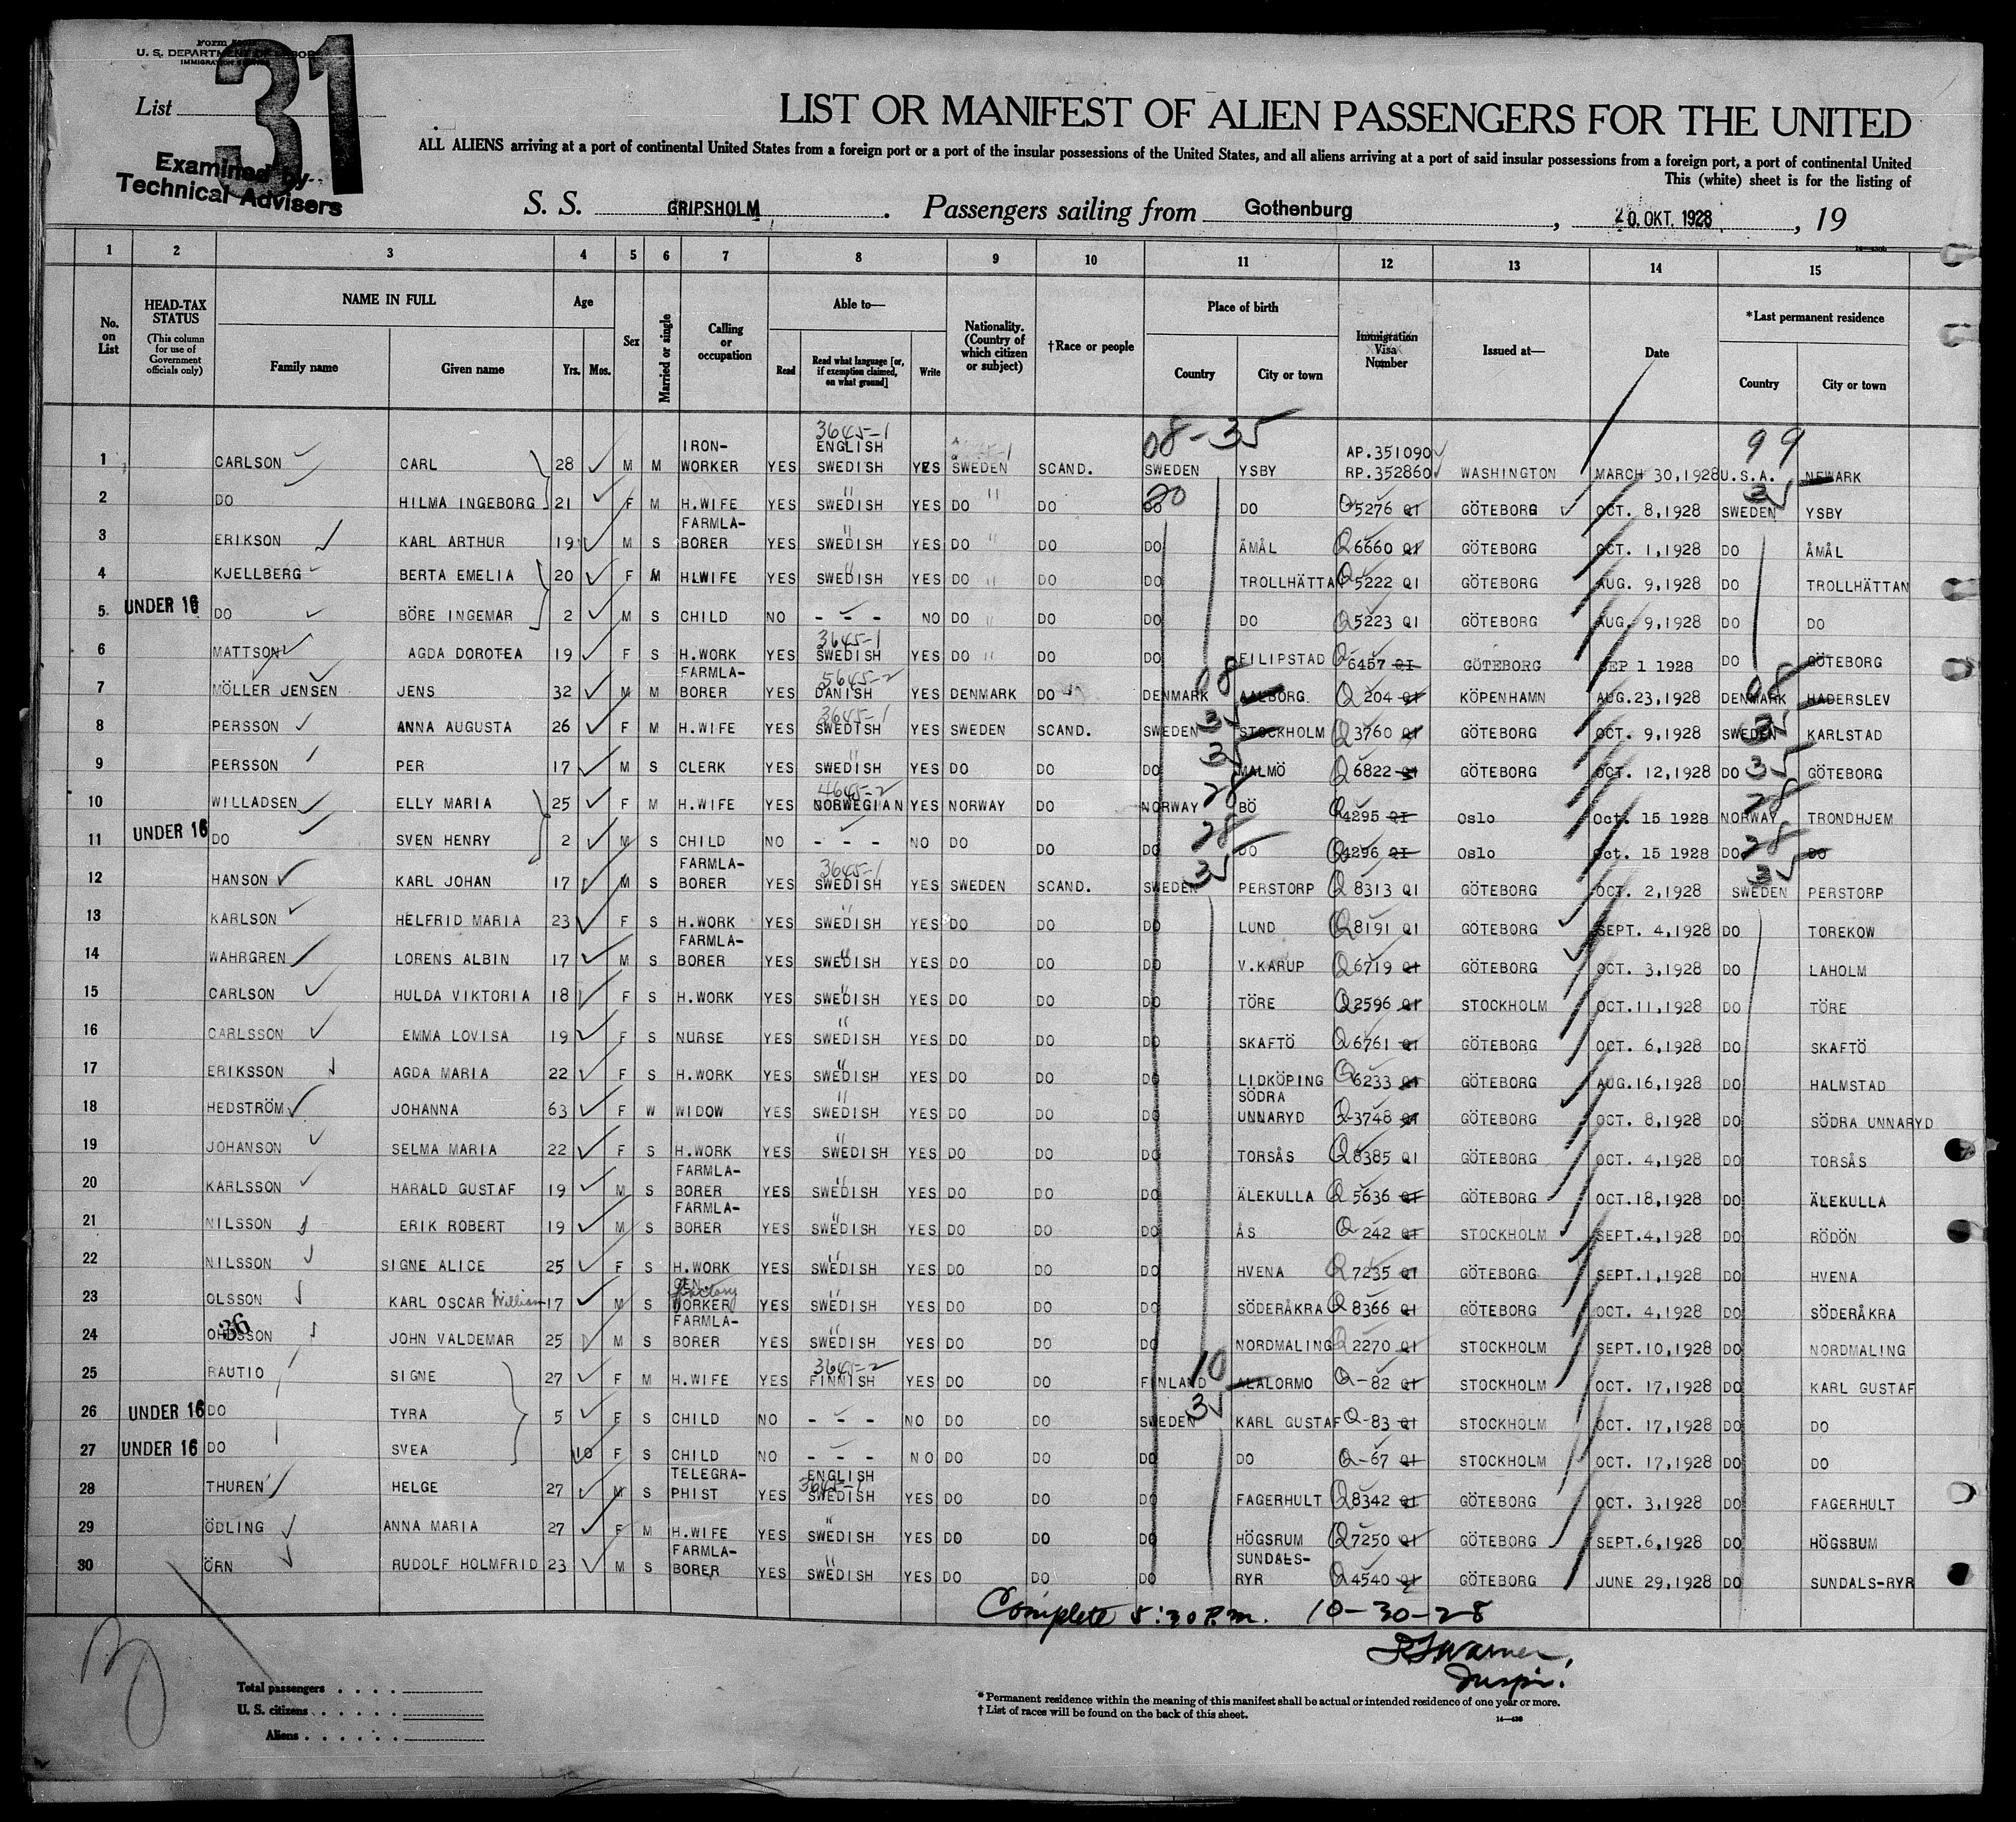 Form
U. S. DEPARTMENT OF LABOR
IMMIGRATION SERVICE
List
31
Examined by
Technical Advisers
LIST OR MANIFEST OF ALIEN PASSENGERS FOR THE UNITED
ALL ALIENS arriving at a port of continental United States from a foreign port or a port of the insular possessions of the United States, and all aliens arriving at a port of said insular possessions from a foreign port, a port of continental United
This (white) sheet is for the listing of
S. S. GRIPSHOLM. Passengers sailing from Gothenburg, 20. OKT. 1928, 19
1 2 3 4 5 6 7 8 9 10 11 12 13 14 15
No. on List
HEAD-TAX STATUS (This column for use of Government officials only)
NAME IN FULL Family name Given name
Age Yrs. Mos.
Sex
Married or single
Calling or occupation
Able to— Read Read what language [or, if exemption claimed, on what ground] Write
Nationality. (Country of which citizen or subject)
†Race or people
Place of birth Country City or town
Immigration Visa Number
Issued at—
Date
*Last permanent residence Country City or town
3645-1 08-35 99
1 CARLSON CARL 28 M M IRON-WORKER YES ENGLISH SWEDISH YES SWEDEN SCAND. SWEDEN YSBY AP.351090 RP.352860 WASHINGTON MARCH 30,1928 U.S.A. NEWARK
2 DO HILMA INGEBORG 21 F M H.WIFE YES SWEDISH YES DO DO DO DO Q 5276 QI GÖTEBORG OCT. 8,1928 35 SWEDEN YSBY
3 ERIKSON KARL ARTHUR 19 M S FARMLA-BORER YES SWEDISH YES DO DO DO ÅMÅL Q 6660 QI GÖTEBORG OCT. 1,1928 DO ÅMÅL
4 KJELLBERG BERTA EMELIA 20 F M H.WIFE YES SWEDISH YES DO DO DO TROLLHÄTTA Q 5222 QI GÖTEBORG AUG. 9,1928 DO TROLLHÄTTAN
5 UNDER 16 DO BÖRE INGEMAR 2 M S CHILD NO - - - NO DO DO DO DO Q 5223 QI GÖTEBORG AUG. 9,1928 DO DO
6 MATTSON AGDA DOROTEA 19 F S H.WORK YES 3645-1 SWEDISH YES DO DO DO FILIPSTAD Q 6457 QI GÖTEBORG SEP 1 1928 DO GÖTEBORG
7 MÖLLER JENSEN JENS 32 M M FARMLA-BORER YES 5645-2 DANISH YES DENMARK DO DENMARK 08 AALBORG Q 204 QI KÖPENHAMN AUG.23,1928 DENMARK 08 HADERSLEV
8 PERSSON ANNA AUGUSTA 26 F M H.WIFE YES 3645-1 SWEDTSH YES SWEDEN SCAND. SWEDEN 35 STOCKHOLM Q 3760 QI GÖTEBORG OCT. 9,1928 SWEDEN 35 KARLSTAD
9 PERSSON PER 17 M S CLERK YES SWEDISH YES DO DO DO 35 MALMÖ Q 6822 QI GÖTEBORG OCT. 12,1928 DO 35 GÖTEBORG
10 WILLADSEN ELLY MARIA 25 F M H.WIFE YES 4645-2 NORWEGIAN YES NORWAY DO NORWAY 28 BÖ Q 4295 QI Oslo Oct. 15 1928 NORWAY 28 TRONDHJEM
11 UNDER 16 DO SVEN HENRY 2 M S CHILD NO - - - NO DO DO DO 28 DO Q 4296 QI Oslo Oct. 15 1928 DO 28 DO
12 HANSON KARL JOHAN 17 M S FARMLA-BORER YES 3645-1 SWEDISH YES SWEDEN SCAND. SWEDEN 35 PERSTORP Q 8313 QI GÖTEBORG OCT. 2,1928 35 SWEDEN PERSTORP
13 KARLSON HELFRID MARIA 23 F S H.WORK YES SWEDISH YES DO DO DO LUND Q 8191 QI GÖTEBORG SEPT. 4,1928 DO TOREKOW
14 WAHRGREN LORENS ALBIN 17 M S FARMLA-BORER YES SWEDISH YES DO DO DO V.KARUP Q 6719 QI GÖTEBORG OCT. 3,1928 DO LAHOLM
15 CARLSON HULDA VIKTORIA 18 F S H.WORK YES SWEDISH YES DO DO DO TÖRE Q 2596 QI STOCKHOLM OCT.11,1928 DO TÖRE
16 CARLSSON EMMA LOVISA 19 F S NURSE YES SWEDISH YES DO DO DO SKAFTÖ Q 6761 QI GÖTEBORG OCT. 6,1928 DO SKAFTÖ
17 ERIKSSON AGDA MARIA 22 F S H.WORK YES SWEDISH YES DO DO DO LIDKÖPING Q 6233 QI GÖTEBORG AUG.16,1928 DO HALMSTAD
18 HEDSTRÖM JOHANNA 63 F W WIDOW YES SWEDISH YES DO DO DO SÖDRA UNNARYD Q-3748 QI GÖTEBORG OCT. 8,1928 DO SÖDRA UNNARYD
19 JOHANSON SELMA MARIA 22 F S H.WORK YES SWEDISH YES DO DO DO TORSÅS Q 8385 QI GÖTEBORG OCT. 4,1928 DO TORSÅS
20 KARLSSON HARALD GUSTAF 19 M S FARMLA-BORER YES SWEDISH YES DO DO DO ÄLEKULLA Q 5636 QI GÖTEBORG OCT.18,1928 DO ÄLEKULLA
21 NILSSON ERIK ROBERT 19 M S FARMLA-BORER YES SWEDISH YES DO DO DO ÅS Q 242 QI STOCKHOLM SEPT.4,1928 DO RÖDÖN
22 NILSSON SIGNE ALICE 25 F S H.WORK YES SWEDISH YES DO DO DO HVENA Q 7235 QI GÖTEBORG SEPT.1,1928 DO HVENA
23 OLSSON KARL OSCAR William 17 M S GEN. factory WORKER YES SWEDISH YES DO DO DO SÖDERÅKRA Q 8366 QI GÖTEBORG OCT. 4,1928 DO SÖDERÅKRA
24 36 OHLSSON JOHN VALDEMAR 25 M S FARMLA-BORER YES SWEDISH YES DO DO DO NORDMALING Q 2270 QI STOCKHOLM SEPT.10,1928 DO NORDMALING
25 RAUTIO SIGNE 27 F M H.WIFE YES 3645-2 FINNISH YES DO DO FINLAND 10 ALALORMO Q-82 QI STOCKHOLM OCT. 17,1928 DO KARL GUSTAF
26 UNDER 16 DO TYRA 5 F S CHILD NO - - - NO DO DO SWEDEN 35 KARL GUSTAF Q-83 QI STOCKHOLM OCT. 17,1928 DO DO
27 UNDER 16 DO SVEA 10 F S CHILD NO - - - NO DO DO DO DO Q-67 QI STOCKHOLM OCT. 17,1928 DO DO
28 THUREN HELGE 27 M S TELEGRA-PHIST YES ENGLISH 3645-1 SWEDISH YES DO DO DO FAGERHULT Q 8342 QI GÖTEBORG OCT. 3,1928 DO FAGERHULT
29 ÖDLING ANNA MARIA 27 F M H.WIFE YES SWEDISH YES DO DO DO HÖGSRUM Q 7250 QI GÖTEBORG SEPT.6,1928 DO HÖGSBUM
30 ÖRN RUDOLF HOLMFRID 23 M S FARMLA-BORER YES SWEDISH YES DO DO DO SUNDALS-RYR Q 4540 QI GÖTEBORG JUNE 29,1928 DO SUNDALS-RYR
Complete 5:30 P.m. 10-30-28
Warner,
Inspr.
Total passengers
U. S. citizens
Aliens
* Permanent residence within the meaning of this manifest shall be actual or intended residence of one year or more.
† List of races will be found on the back of this sheet.